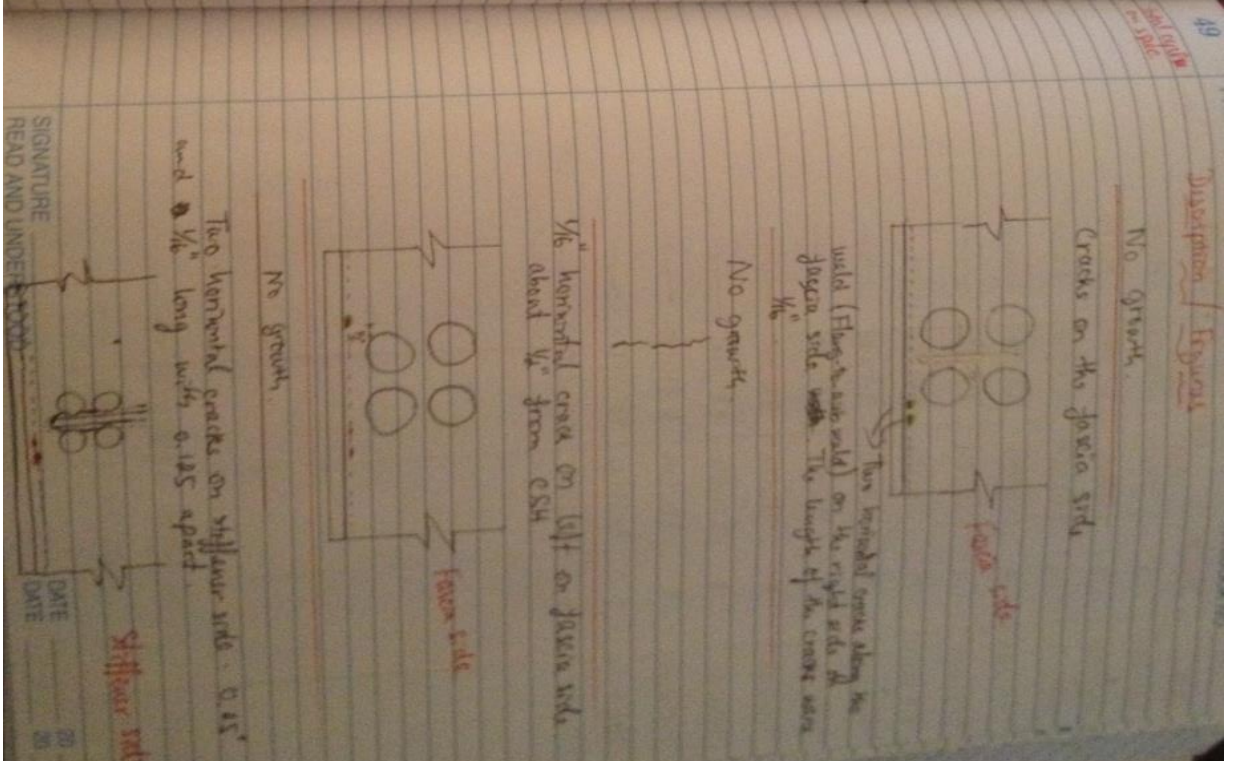 49
on spec
Description / Figures
No growth.
Cracks on the fascia side
Fascia side
Two horizontal cracks along the
weld (Flange web weld) on the right side of
fascia side The length of the cracks were
1/16"
No growth.
1/16" horizontal crack on left on fascia side
about 1/2" from CSH
Fascia side
No growth
Two horizontal cracks on stiffener side. 0.25"
and 1/16" long with 0.125 apart.
Stiffener side
SIGNATURE
READ AND UNDERSTOOD
DATE 20
DATE 20